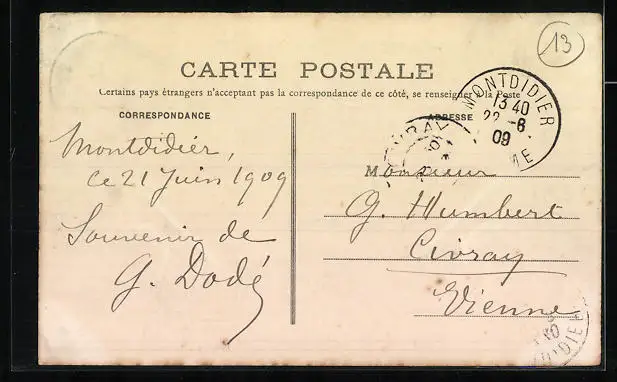 13
CARTE POSTALE
Certains pays étrangers n'acceptant pas la correspondance de ce côté, se renseigner à la Poste
CORRESPONDANCE
ADRESSE
MONTDIDIER
13 40
22 -6
09
ME
Montdidier,
ce 21 Juin 1909
Souvenir de
G. Dodé
Monsieur
G. Humbert
Civray
Vienne